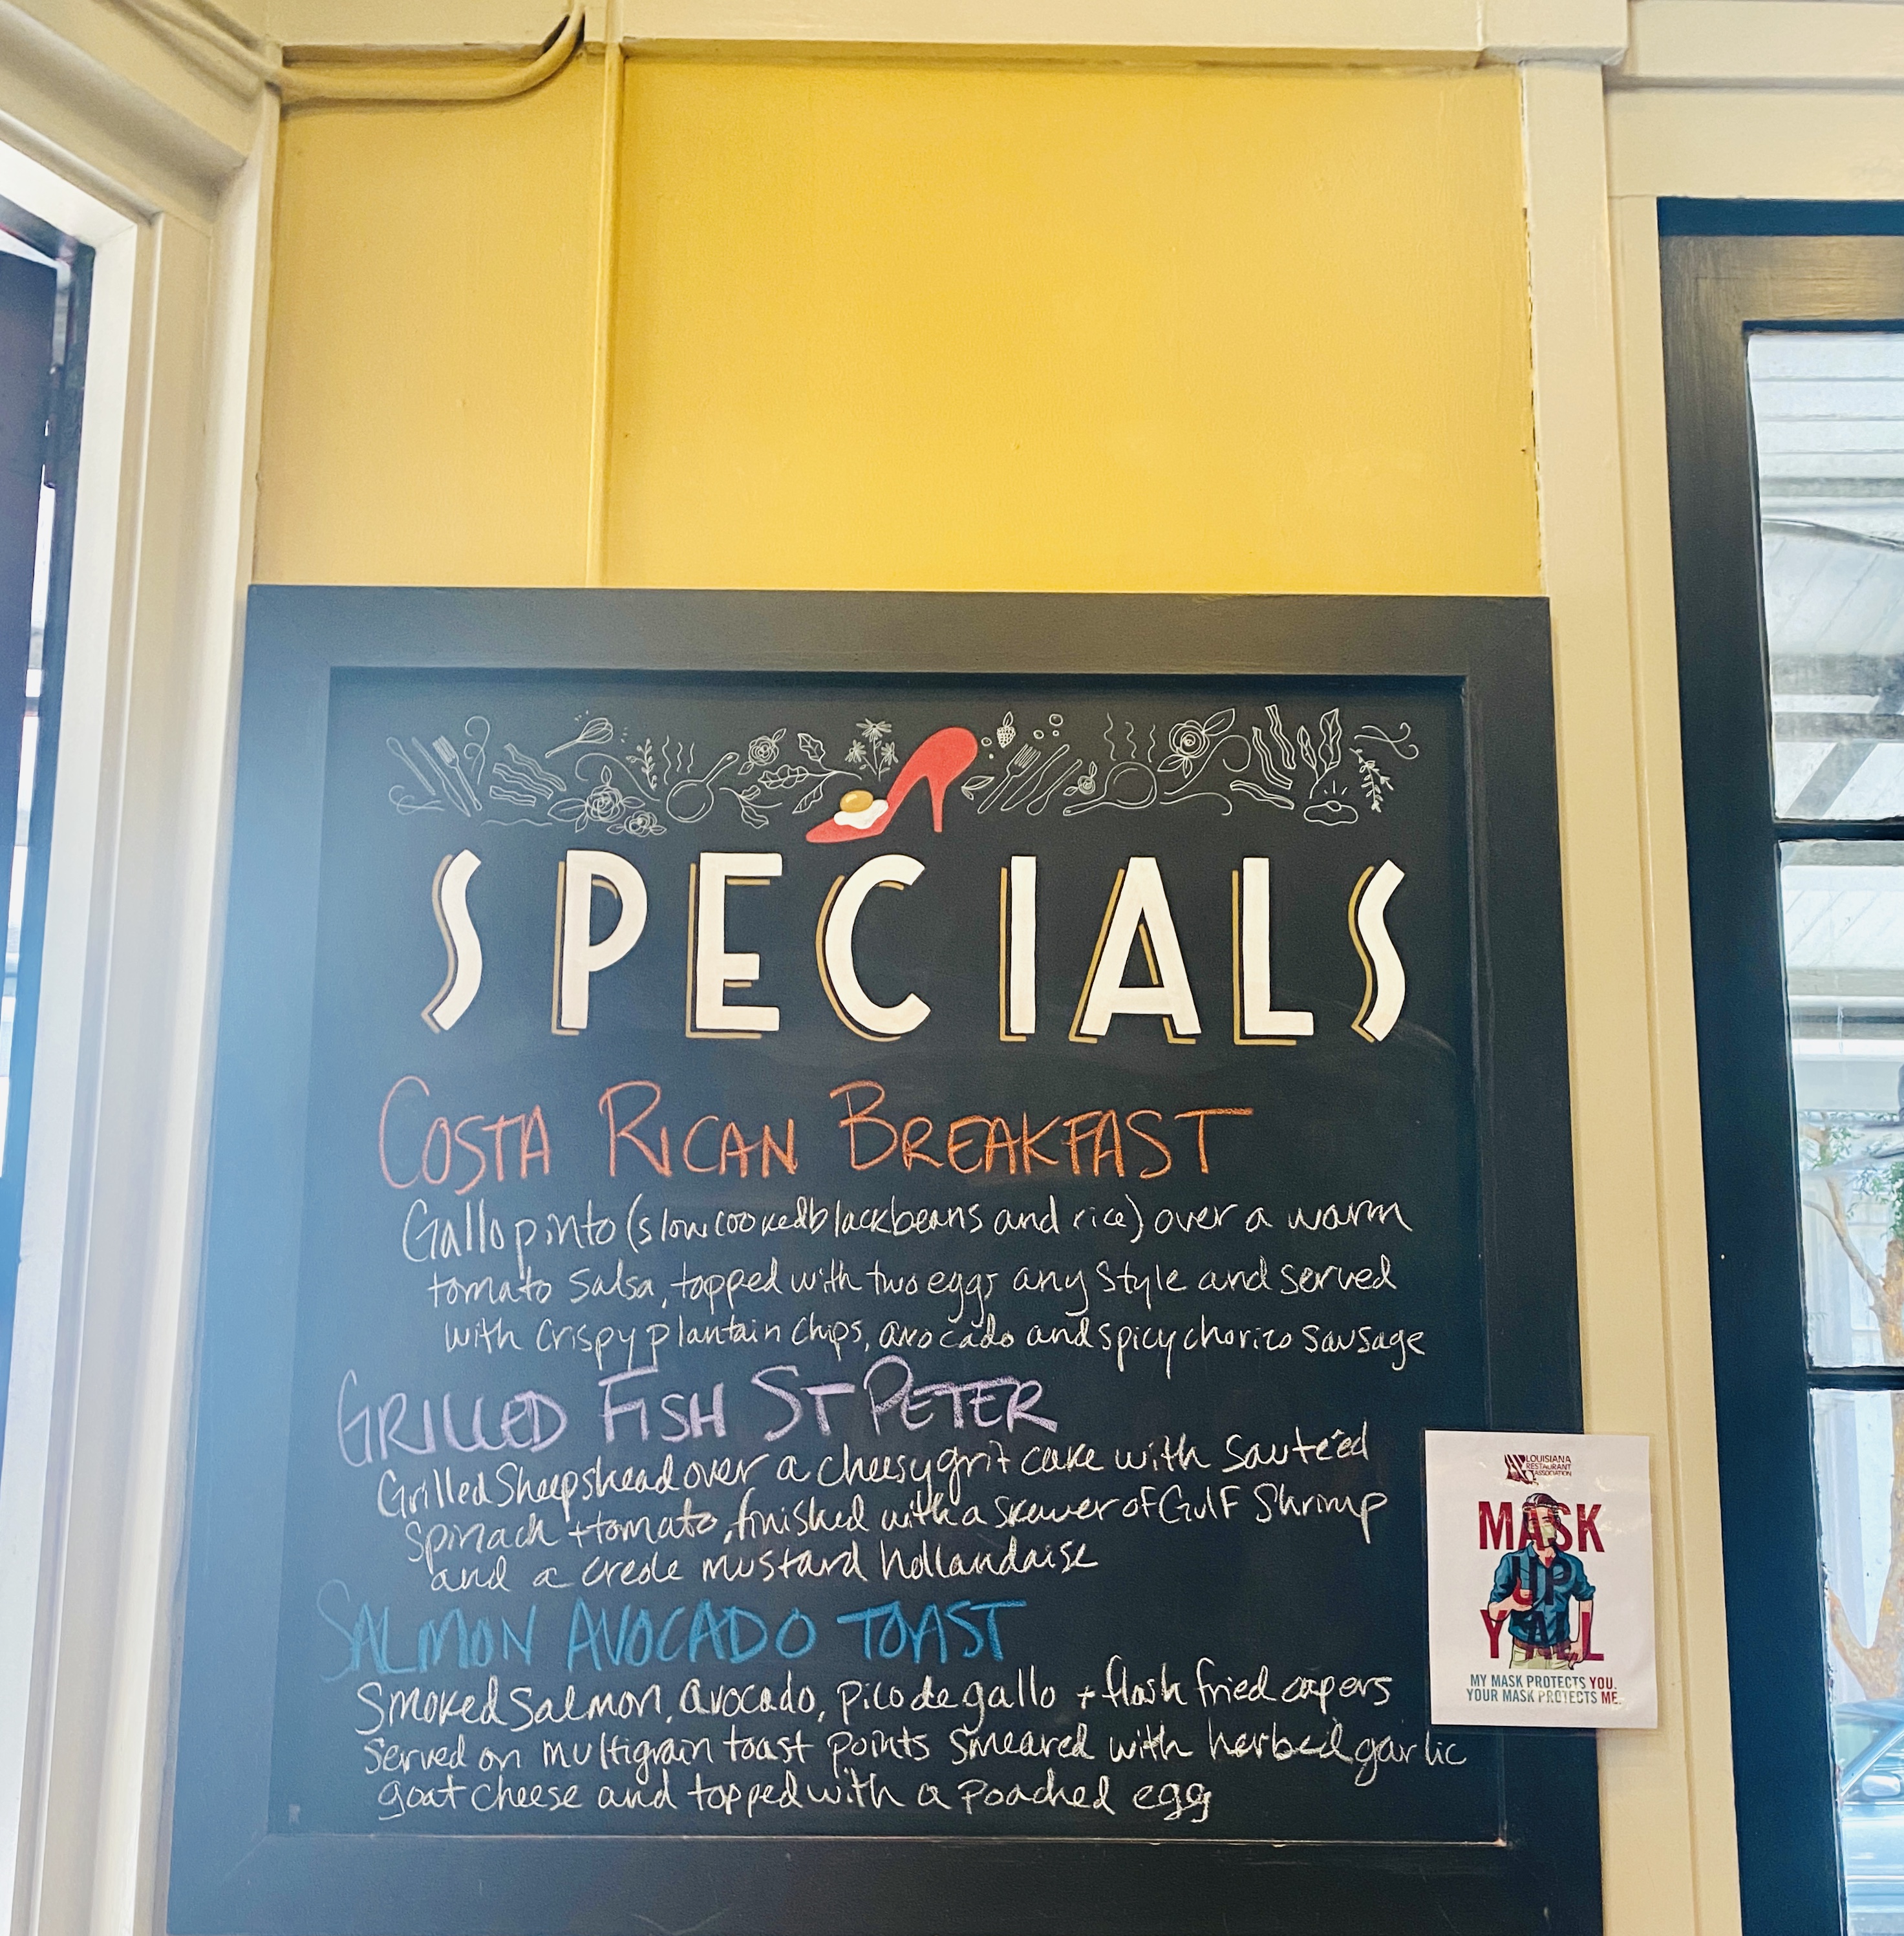 SPECIALS
COSTA RICAN BREAKFAST
Gallo pinto (slow cooked black beans and rice) over a warm
tomato salsa, topped with two eggs any style and served
with crispy plantain chips, avocado and spicy chorizo sausage
GRILLED FISH ST PETER
Grilled Sheepshead over a cheesy grit cake with sauteéd
spinach + tomato, finished with a skewer of Gulf Shrimp
and a creole mustard hollandaise
SALMON AVOCADO TOAST
Smoked salmon, avocado, pico de gallo + flash fried capers
served on multigrain toast points smeared with herbed garlic
goat cheese and topped with a poached egg
LOUISIANA
RESTAURANT
ASSOCIATION
MASK
UP
Y'ALL
MY MASK PROTECTS YOU.
YOUR MASK PROTECTS ME.